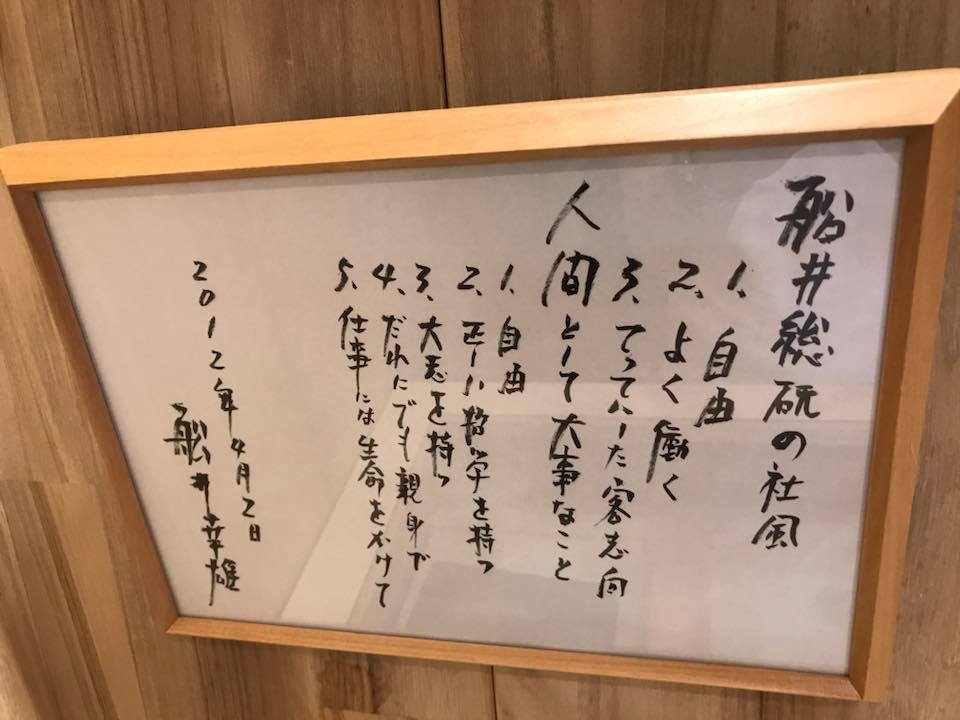 船井総研の社風
1. 自由
2. よく働く
3. てってーした客志向
人間として大事なこと
1. 自由
2. 正しい哲学を持つ
3. 大志を持つ
4. だれにでも親身で
5. 仕事には生命をかけて
2012年4月2日
船井幸雄